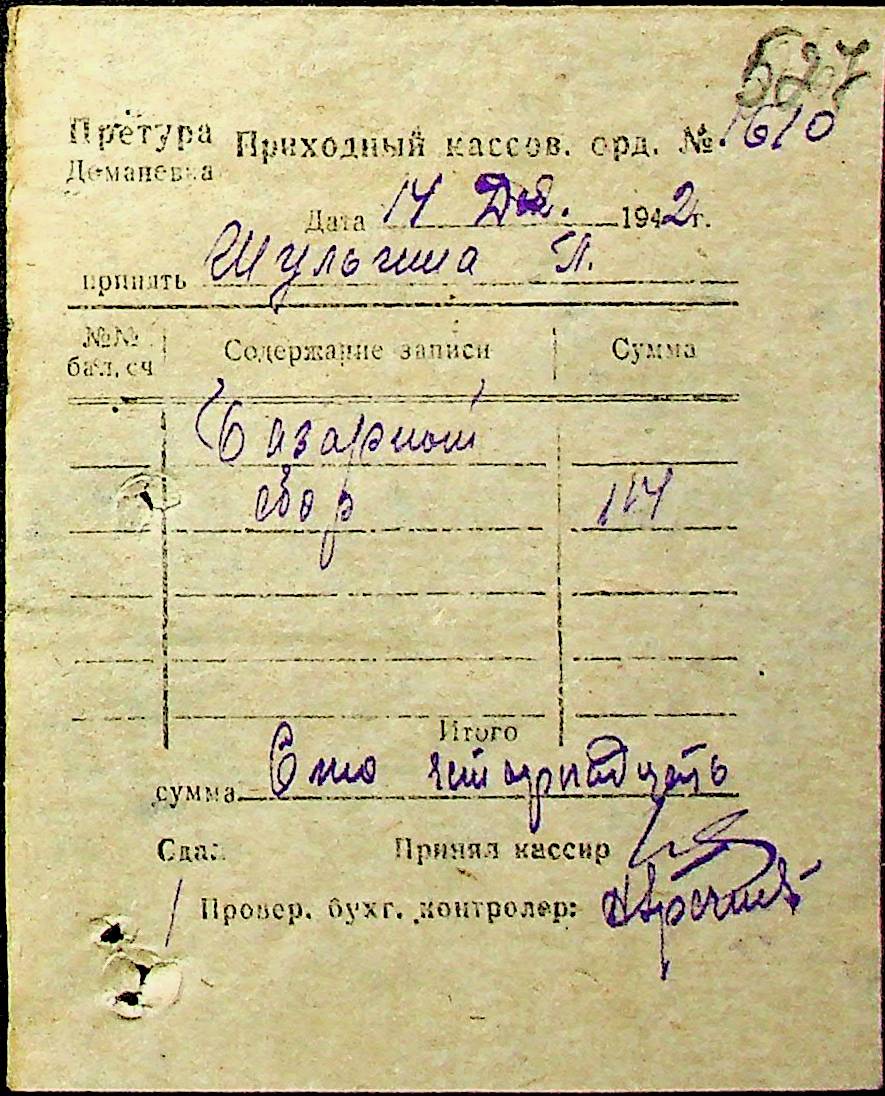 527
Претура Приходный кассов. орд. № 1610
Доманевка
Дата 14 Дек. 1942 г.
принять Шульгина П.
№№ бал. сч Содержание записи Сумма
Базарный
сбор 114
Итого
сумма Сто четырнадцать
Сдал Принял кассир
Провер. бухг. контролер: